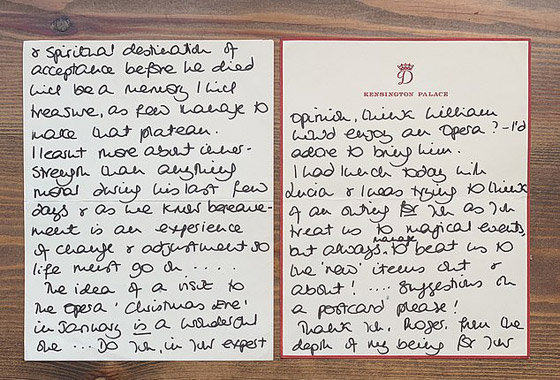 & spiritual destination of
acceptance before he died
will be a memory I will
treasure, as few manage to
make that plateau.
I learnt more about inner-
strength than anything
moral during his last few
days & as we know bereave-
ment is an experience
of change & adjustment so
life must go on.....
The idea of a visit to
the opera 'Christmas Eve'
in January is a wonderful
one ... Do you, in your expert
D
KENSINGTON PALACE
opinion, think William
would enjoy an opera? - I'd
adore to bring him.
I had lunch today with
Lucia & I was trying to think
of an outing for you as you
treat us to magical events,
but always manage to beat us to
the 'new' items out &
about! .... Suggestions on
a postcard please!
Thank you, Roger, from the
depth of my being for your